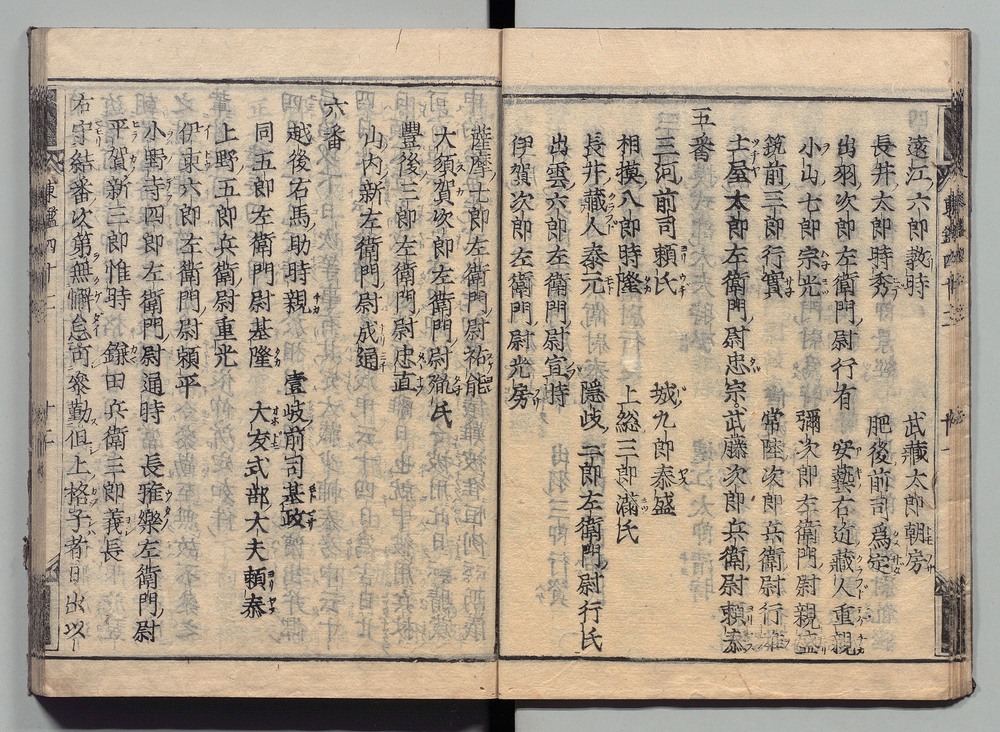 遠江六郎教時　武藏太郎朝房
長井太郎時秀　肥後前司爲定
出羽次郎左衛門尉行有　安藝右近藏人重親
小山七郎宗光　彌次郎左衛門尉親盛
筑前三郎行實　常陸次郎兵衛尉行雄
土屋太郎左衛門尉忠宗　武藤次郎兵衛尉頼泰
五番
三河前司頼氏　城九郎泰盛
相摸八郎時隆　上総三郎滿氏
長井藏人泰元　隠岐三郎左衛門尉行氏
出雲六郎左衛門尉宣時
伊賀次郎左衛門尉光房
薩摩七郎左衛門尉祐能
大須賀次郎左衛門尉胤氏
豐後三郎左衛門尉忠直
山内新左衛門尉成通
六番
越後右馬助時親　壹岐前司基政
同五郎左衛門尉基隆　大友式部大夫頼泰
上野五郎兵衛尉重光
伊東六郎左衛門尉頼平
小野寺四郎左衛門尉通時　長雅樂左衛門尉
平賀新三郎惟時　鎌田兵衛三郎義長
右守結番次第無懈怠可參勤但上格子者日出以
東鑑四十二
十二